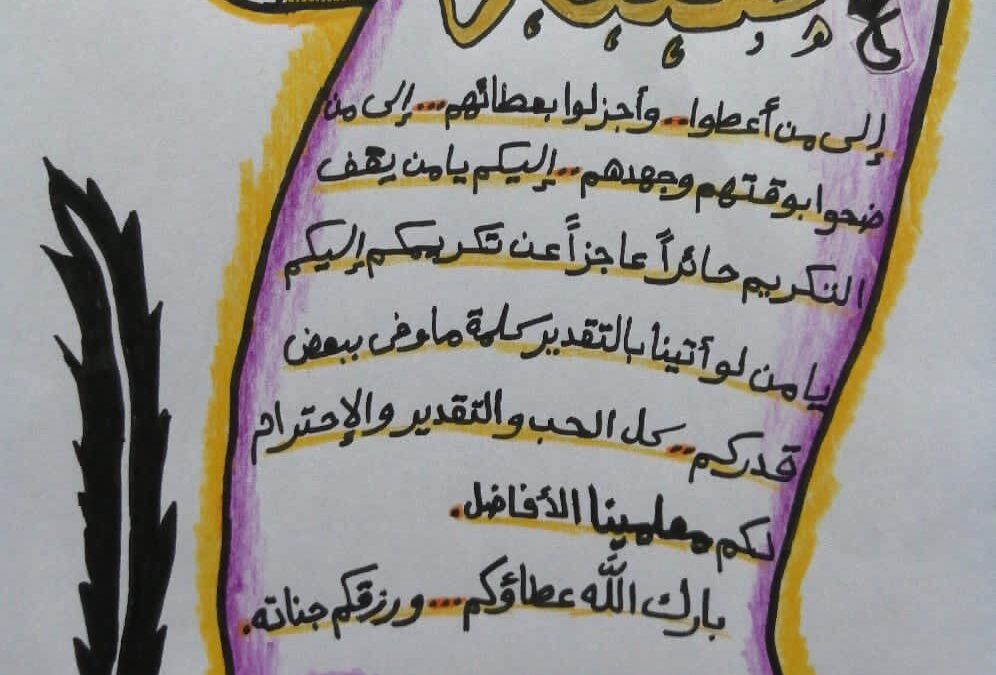 إلى من أعطوا.. وأجزلوا بعطائهم... إلى من
ضحوا بوقتهم وجهدهم.. إليكم يا من يقف
التكريم حائراً عاجزاً عن تكريمكم إليكم
يا من لو أتينا بالتقدير كلمة ماوفى ببعض
قدركم.. كل الحب والتقدير والإحترام
لكم معلمينا الأفاضل.
بارك الله عطاؤكم... ورزقكم جناته.